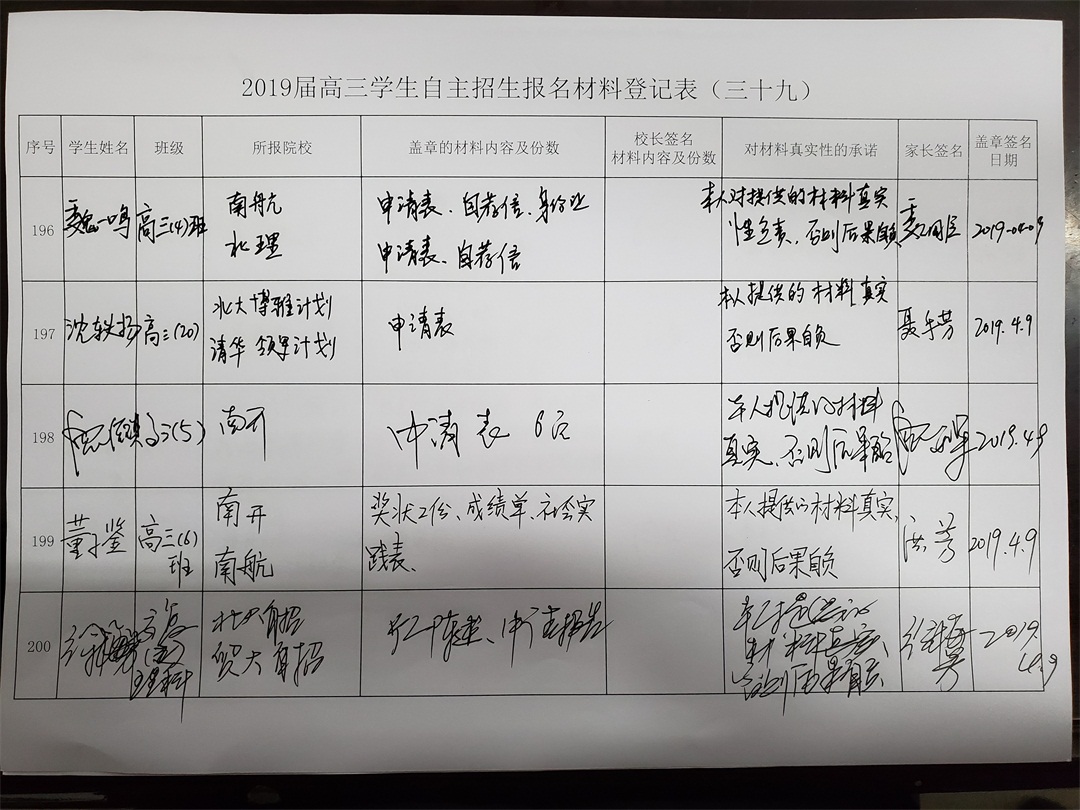 2019届高三学生自主招生报名材料登记表（三十九）
序号 学生姓名 班级 所报院校 盖章的材料内容及份数 校长签名 材料内容及份数 对材料真实性的承诺 家长签名 盖章签名日期
196 魏一鸣 高三(4)班 南航 申请表、自荐信、身份证 本人对提供的材料真实 2019-04-09
北理 申请表、自荐信 性负责，否则后果自负
197 沈轶扬 高三(20) 北大博雅计划 申请表 本人提供的材料真实 聂冬芳 2019.4.9
清华领军计划 否则后果自负
198 高三(5) 南开 申请表 6份 本人提供的材料 2019.4.9
真实，否则后果自负
199 董鉴 高三(6) 南开 奖状2份、成绩单、社会实 本人提供的材料真实， 洪芳 2019.4.9
班 南航 践表、 否则后果自负
200 北大自招 2019.
理科 贸大自招 4.9